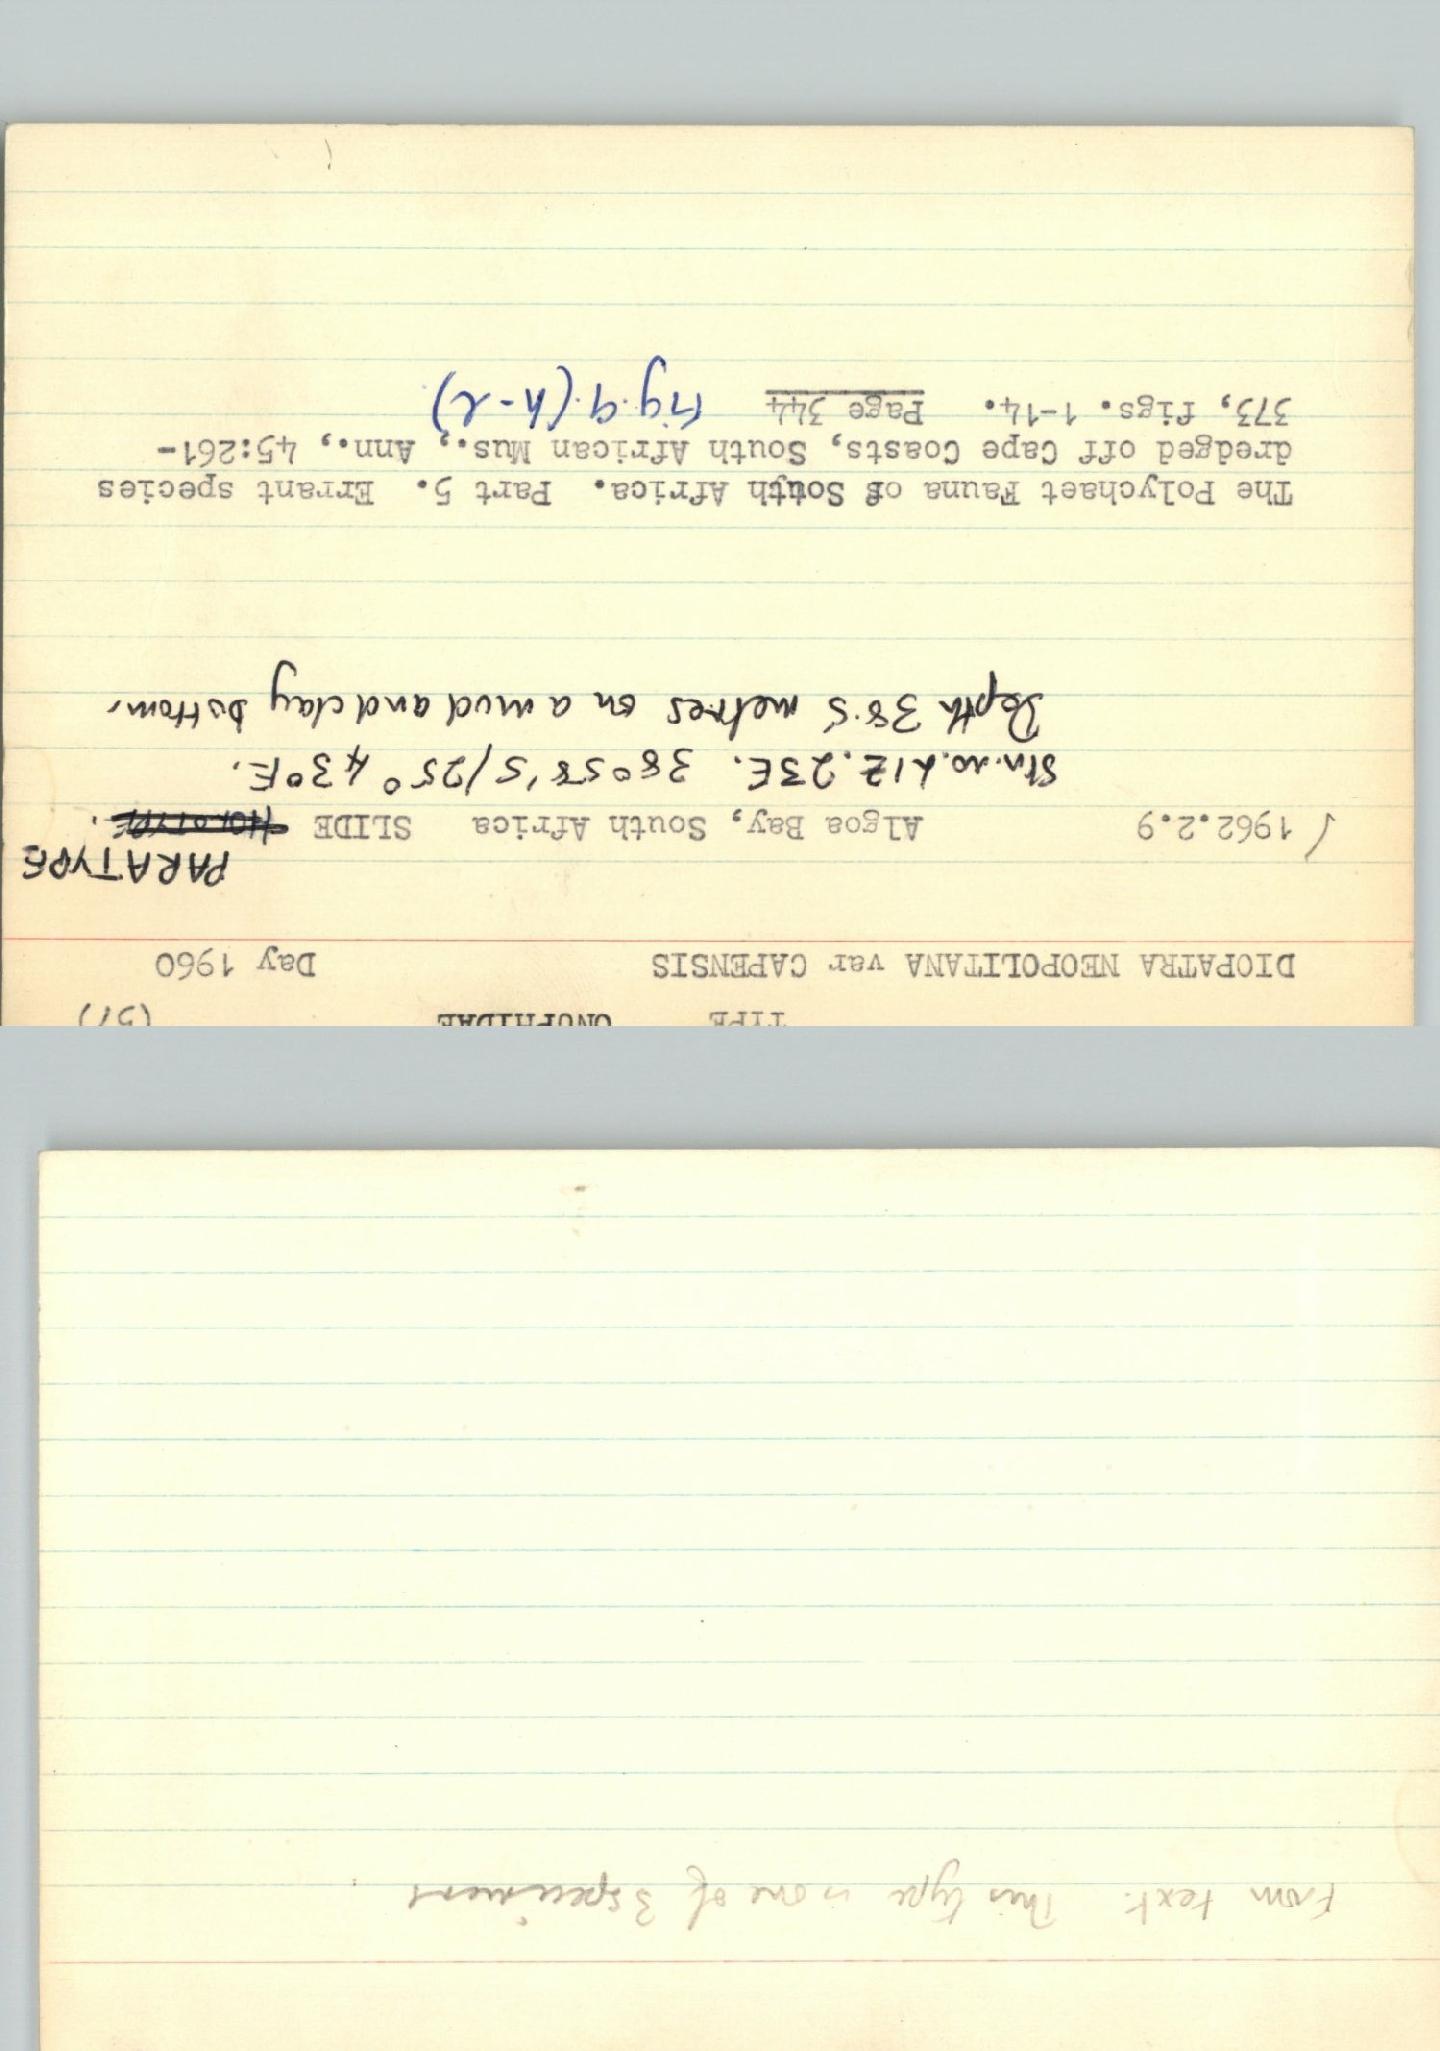 TYPE ONUPHIDAE (57)
DIOPATRA NEOPOLITANA var CAPENSIS Day 1960
PARATYPE
1962.2.9 Algoa Bay, South Africa SLIDE HOLOTYPE.
Stn. no. LIZ. 23E. 38°58'S/25°43°E.
Depth 38.5 metres on a mud and clay bottom.
The Polychaet Fauna of South Africa. Part 5. Errant species
dredged off Cape Coasts, South African Mus., Ann., 45:261-
373, figs. 1-14. Page 344 Fig. 9. (h-l)
From text. This type is one of 3 specimens.